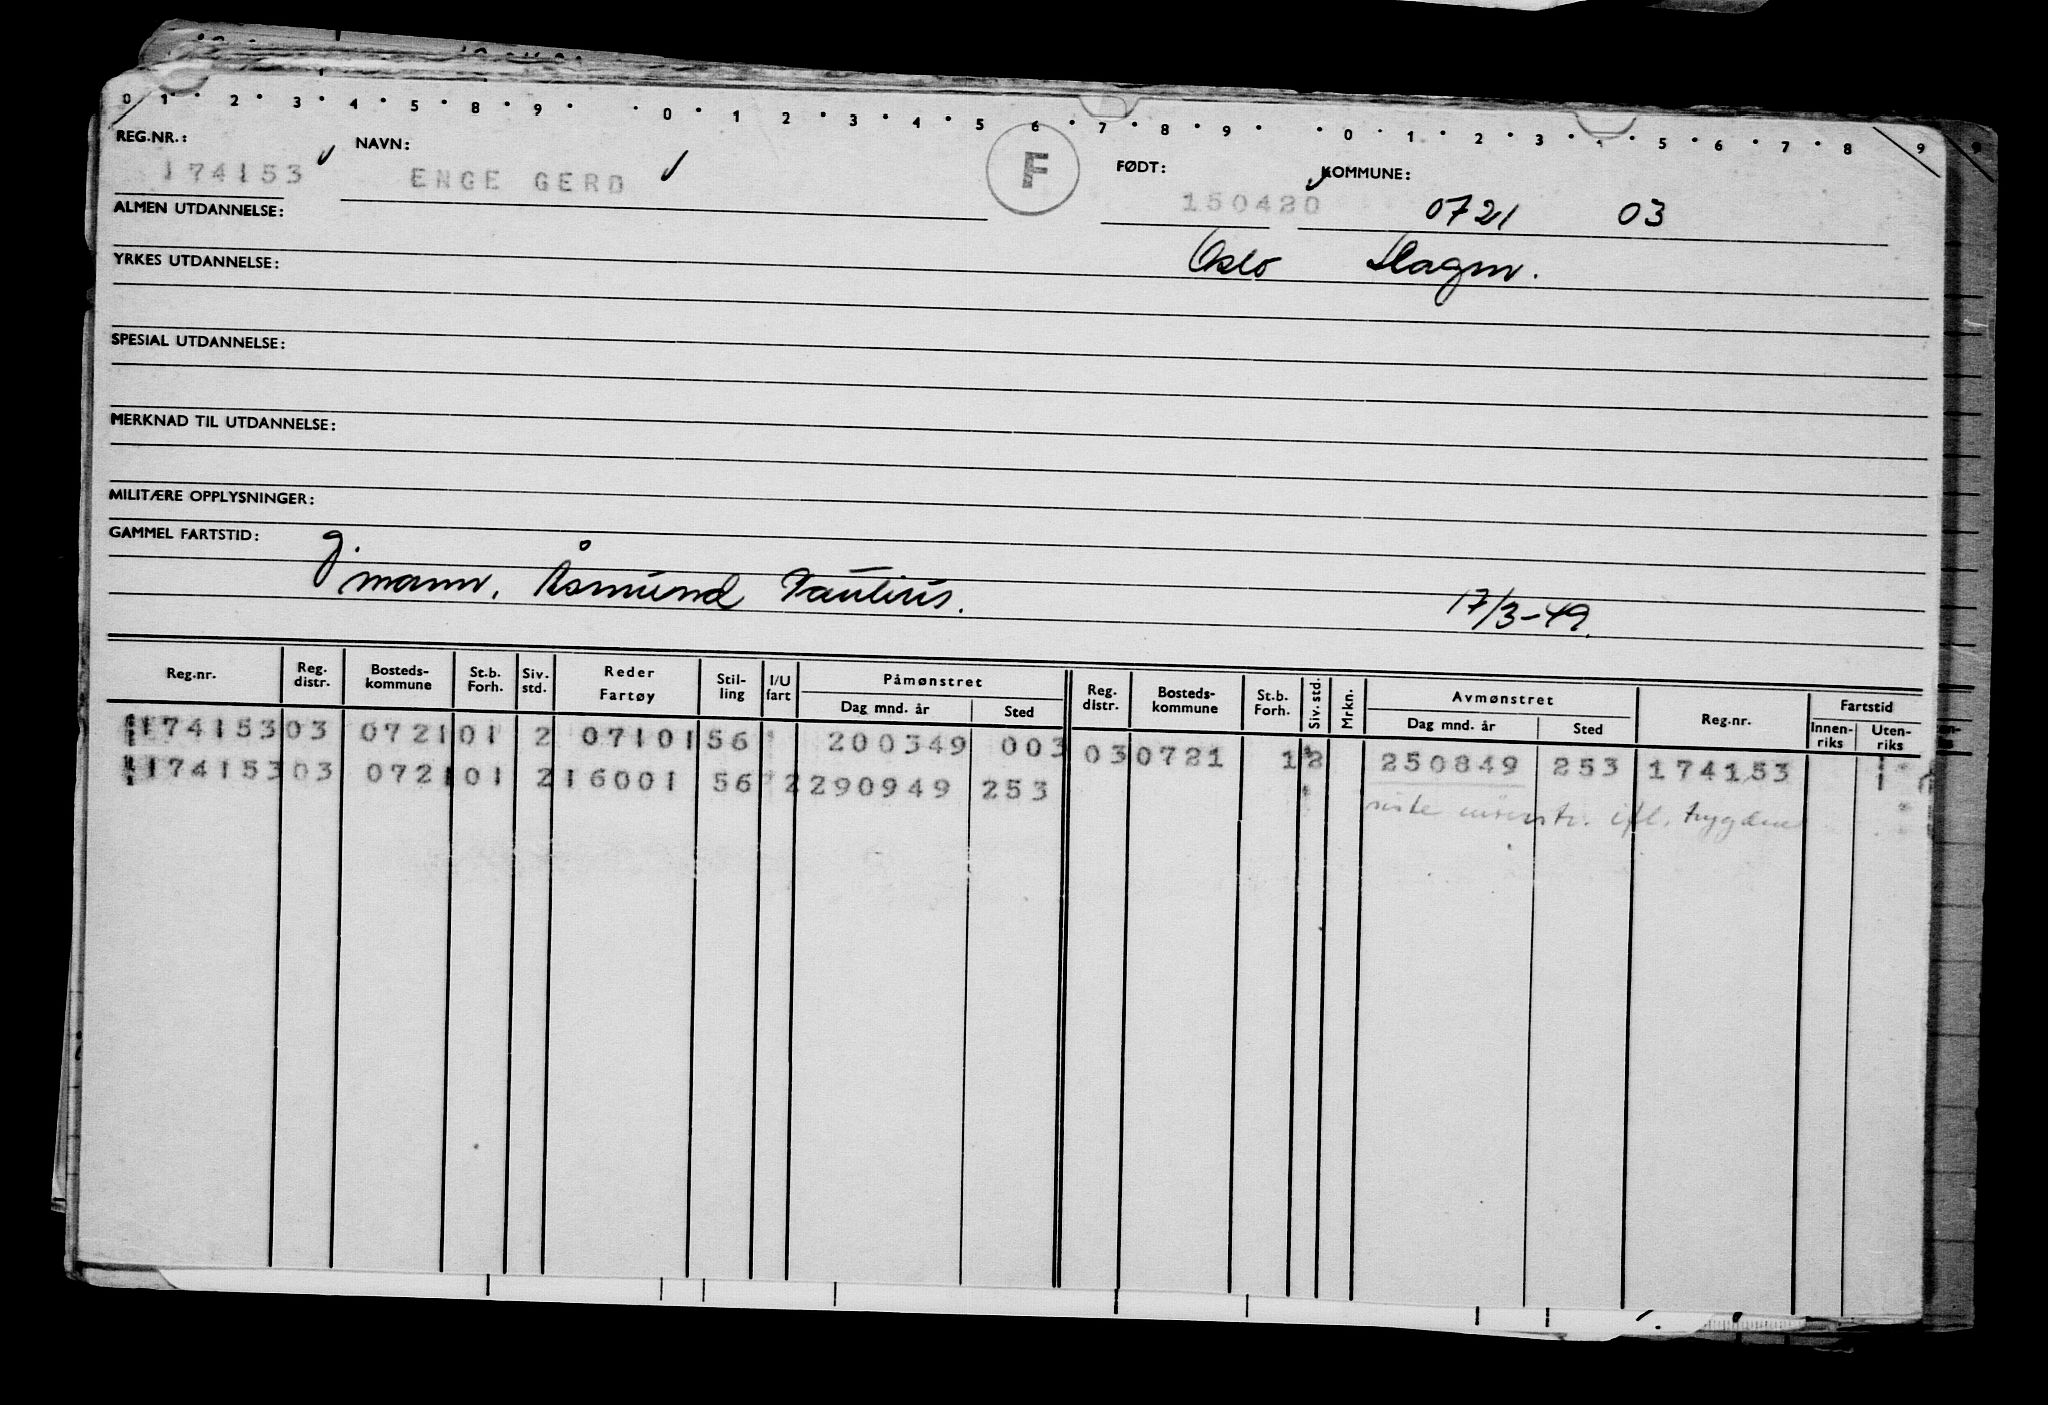 0 1 2 3 4 5 8 9 0 1 2 3 4 5 6 7 8 9 0 1 2 3 5 6 7 8 9
REG.NR.: NAVN: F FØDT: KOMMUNE:
174153 ENGE GERD 150420 0721 03
ALMEN UTDANNELSE:
Oslo
YRKES UTDANNELSE:
SPESIAL UTDANNELSE:
MERKNAD TIL UTDANNELSE:
MILITÆRE OPPLYSNINGER:
GAMMEL FARTSTID:
g.mann. Åsmund Paulius. 17/3-49.
Reg.nr. Reg. distr. Bosteds-kommune St.b. Forh. Siv. std. Reder Fartøy Stil-ling I/U fart Påmønstret Dag mnd. år Sted Reg. distr. Bosteds-kommune St.b. Forh. Siv. std. Mrkn. Avmønstret Dag mnd. år Sted Reg.nr. Fartstid Innen-riks Uten-riks
174153 03 0721 01 2 07101 56 200349 003 03 0721 1 2 250849 253 174153
174153 03 0721 01 2 16001 56 2 290949 253
siste mønstr. ifl. trygden